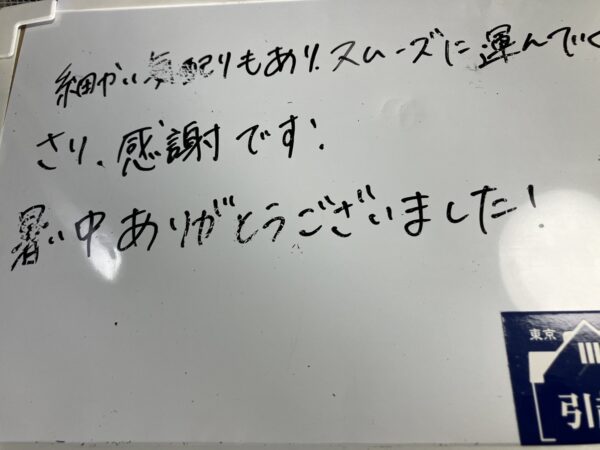 細かい気配りもあり、スムーズに運んでく
さり、感謝です!
暑い中ありがとうございました!
東京
引